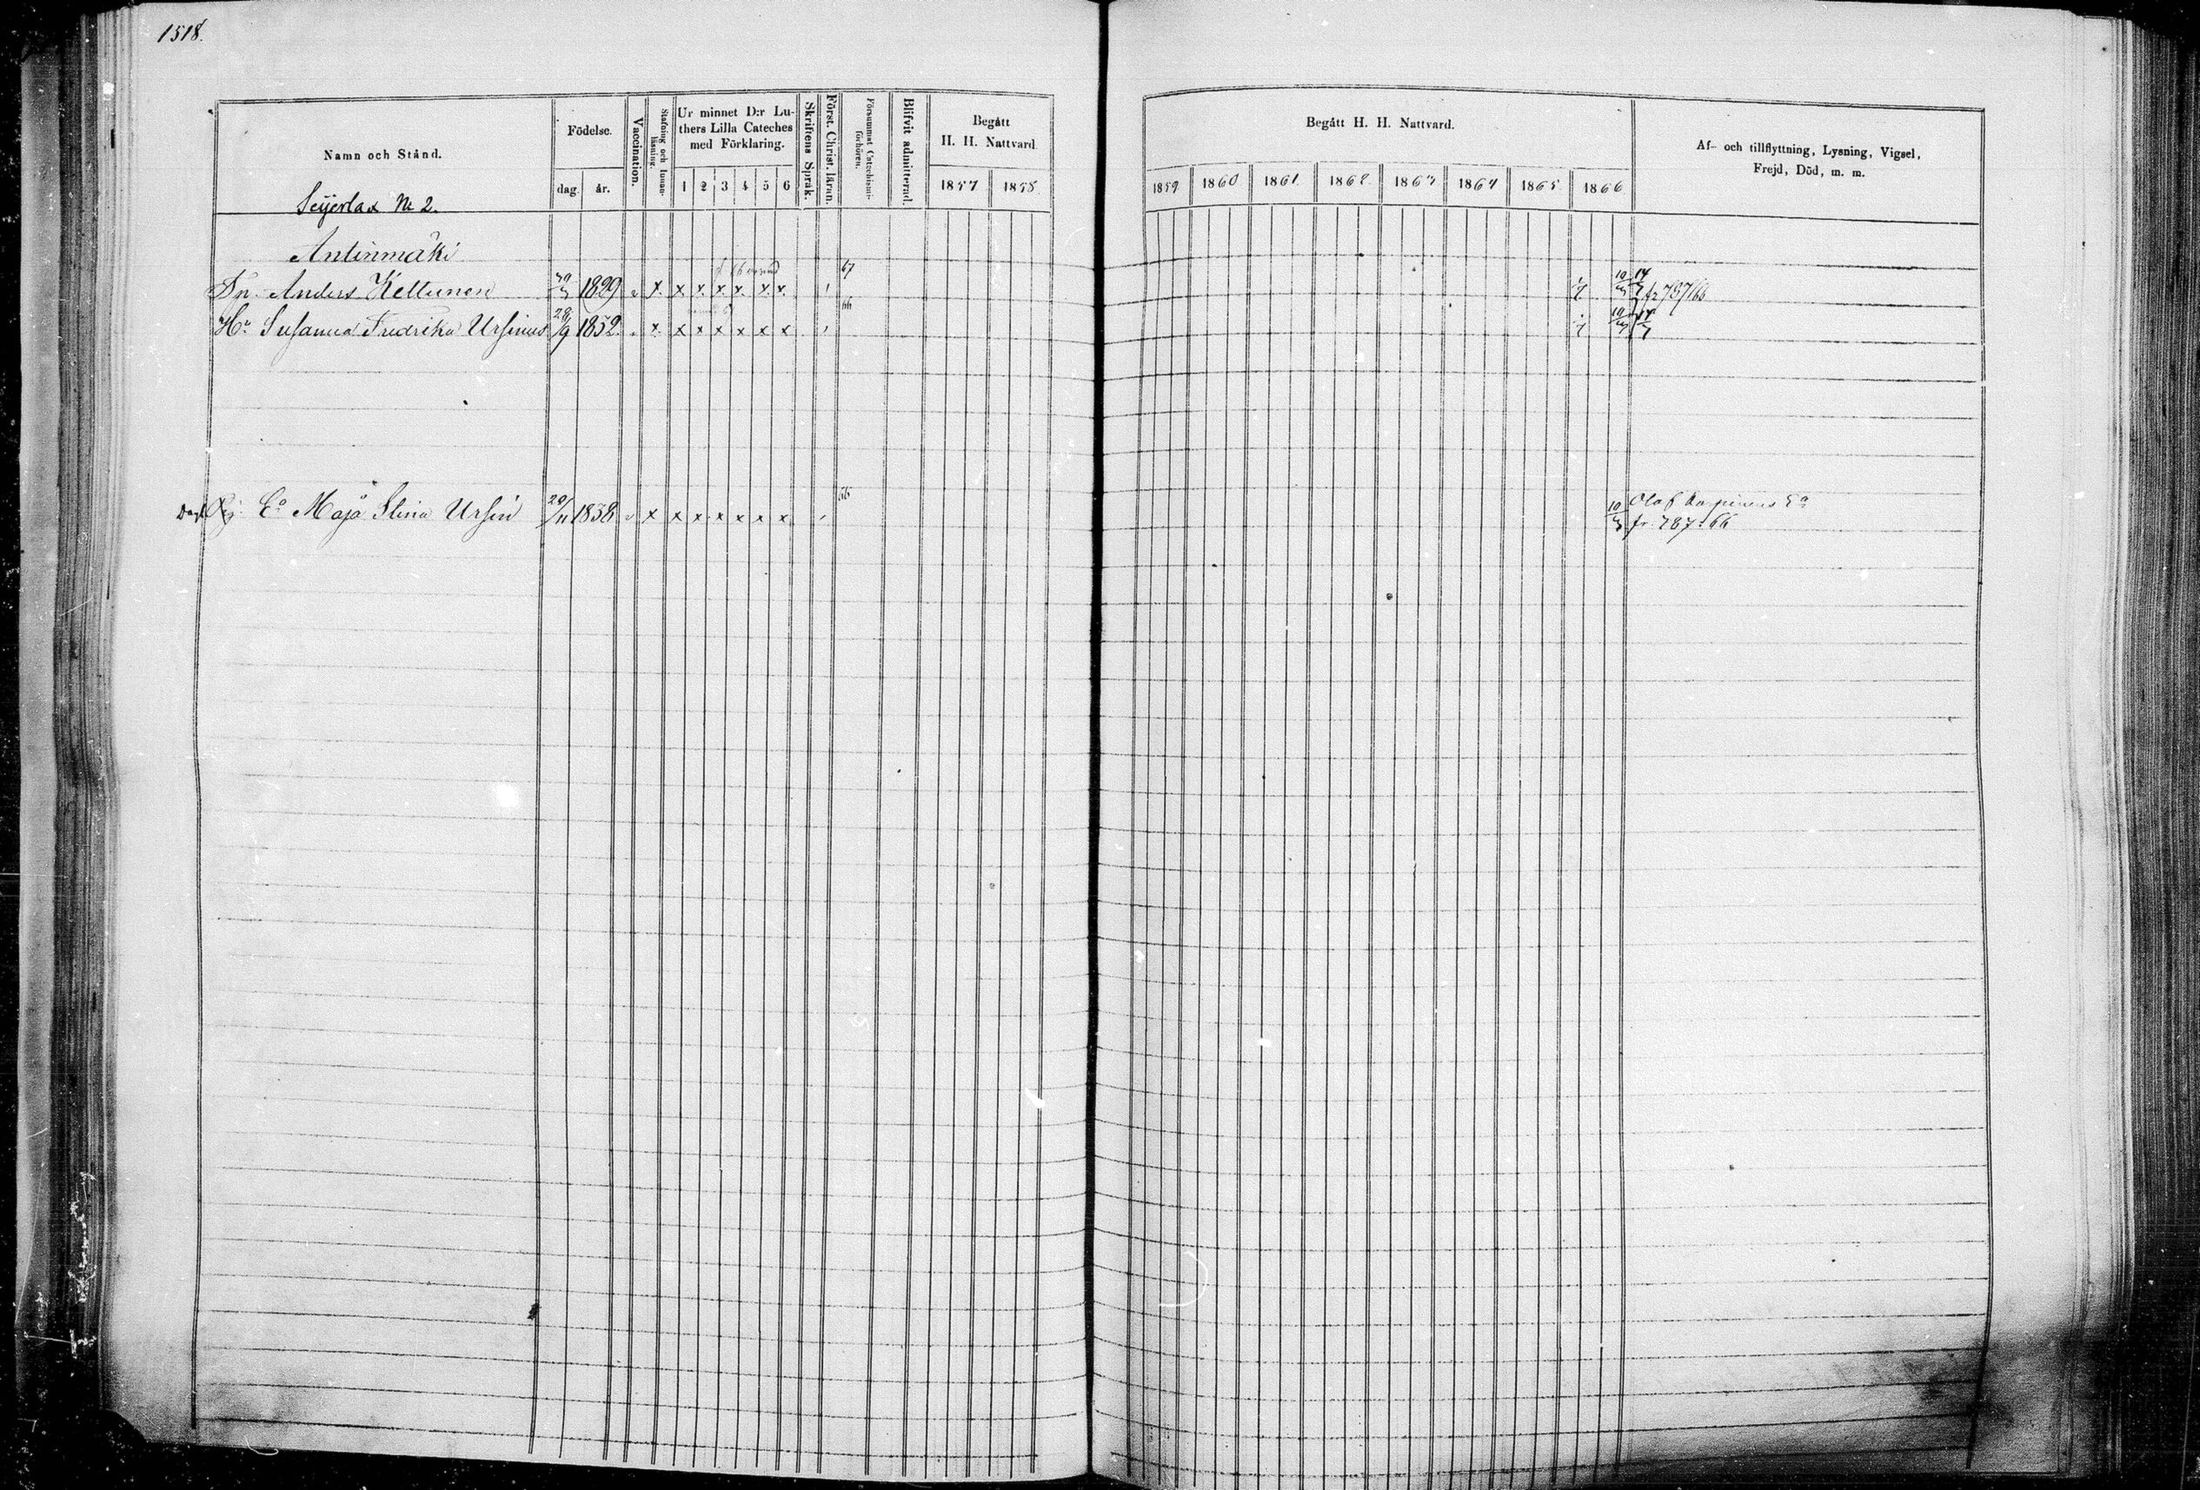 1518.
Namn och Stånd.
Födelse.
dag. år.
Vaccination.
Stafning och Innanläsning.
Ur minnet D:r Luthers Lilla Cateches med Förklaring.
1 2 3 4 5 6
Skriftens Språk.
Först. Christ. läran.
Försummat Catechismiförhören.
Blifvit admitterad.
Begått H. H. Nattvard
1857 1858
Begått H. H. Nattvard.
1859 1860 1861 1862 1863 1864 1865 1866
Af- och tillflyttning, Lysning, Vigsel, Frejd, Död, m. m.
Seijerlax № 2.
Antinmäki
67
Anders Kettunen 1829 x x x x x x x 10/3 14/7 fr 787/66
66
Hu Susanna Fredrika Ursinus 28/9 1832 x x x x x x x 10/3 14/7
66
Ea Maja Stina Ursin 20/11 1838 x x x x x x x 10/3 Olof Ea
fr. 787. 66